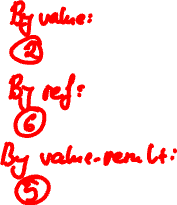 By value:
2
By ref:
6
By value-result:
5